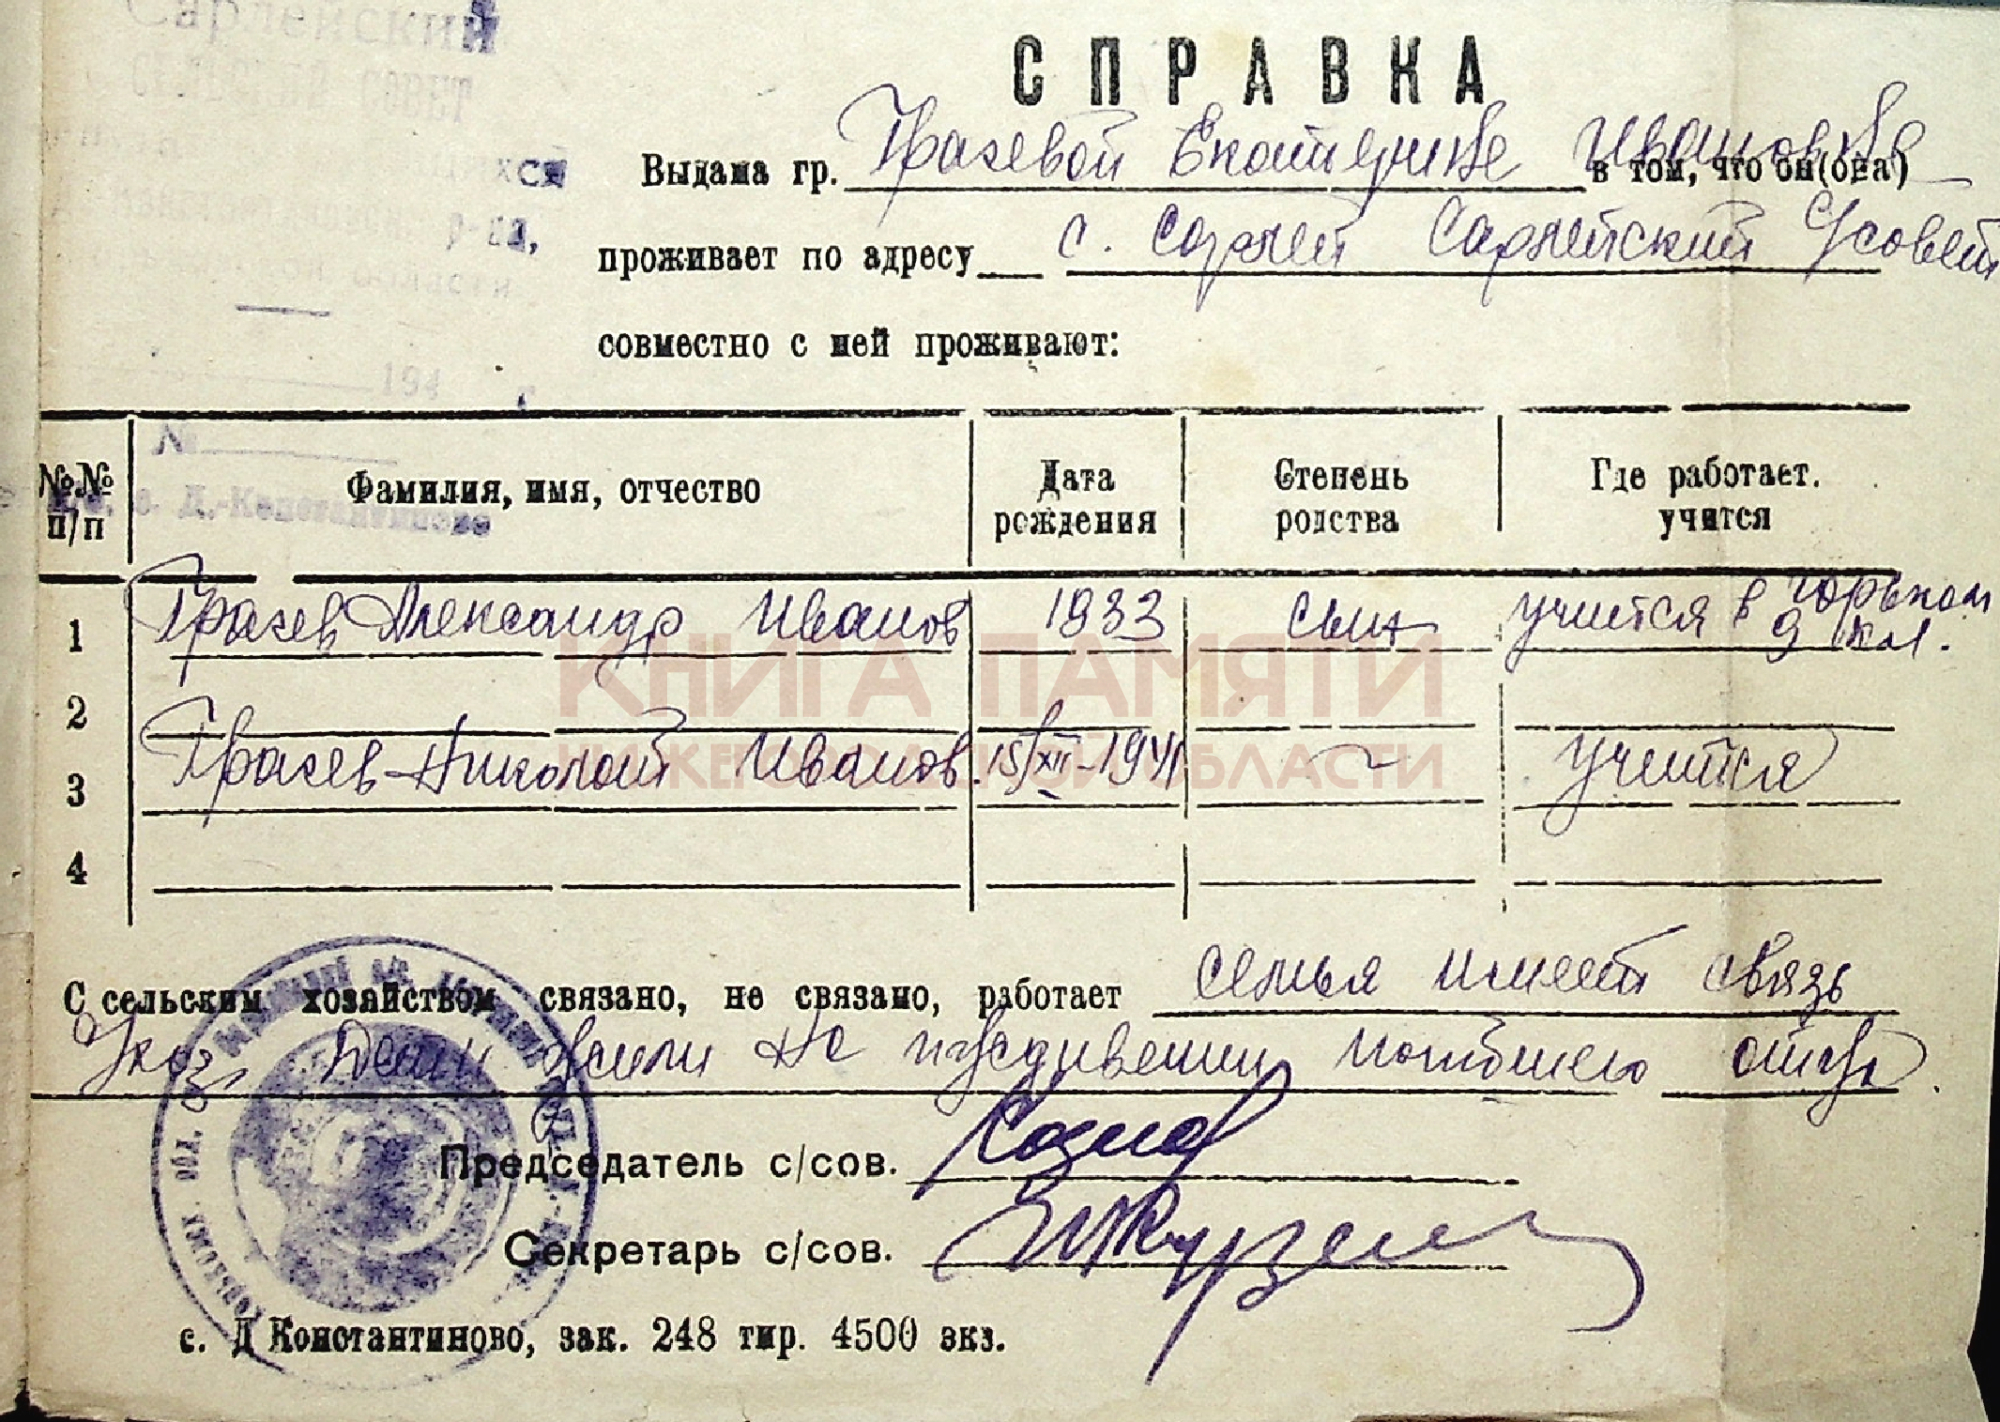 Сарлейский
СЕЛЬСКИЙ СОВЕТ
р-на,
области
194 г
№
п/о. с. Д.-Константиново
СПРАВКА
Выдана гр. Грачевой Екатерине Ивановне в том, что он(она)
проживает по адресу с. Сарлей Сарлейский с/совет
совместно с ней проживают:
№№ п/п Фамилия, имя, отчество Дата рождения Степень родства Где работает. учится
1 Грачев Александр Иванов 1933 сын учится в Горьком 9 кл.
2
3 Грачев Николай Иванов. 15/XII-1941 —"— учится
4
С сельским хозяйством связано, не связано, работает семья имеет связь
Дети были на иждивении погибшего отца.
Председатель с/сов.
Секретарь с/сов.
с. Д Константиново, зак. 248 тир. 4500 экз.
КНИГА ПАМЯТИ
НИЖЕГОРОДСКОЙ ОБЛАСТИ